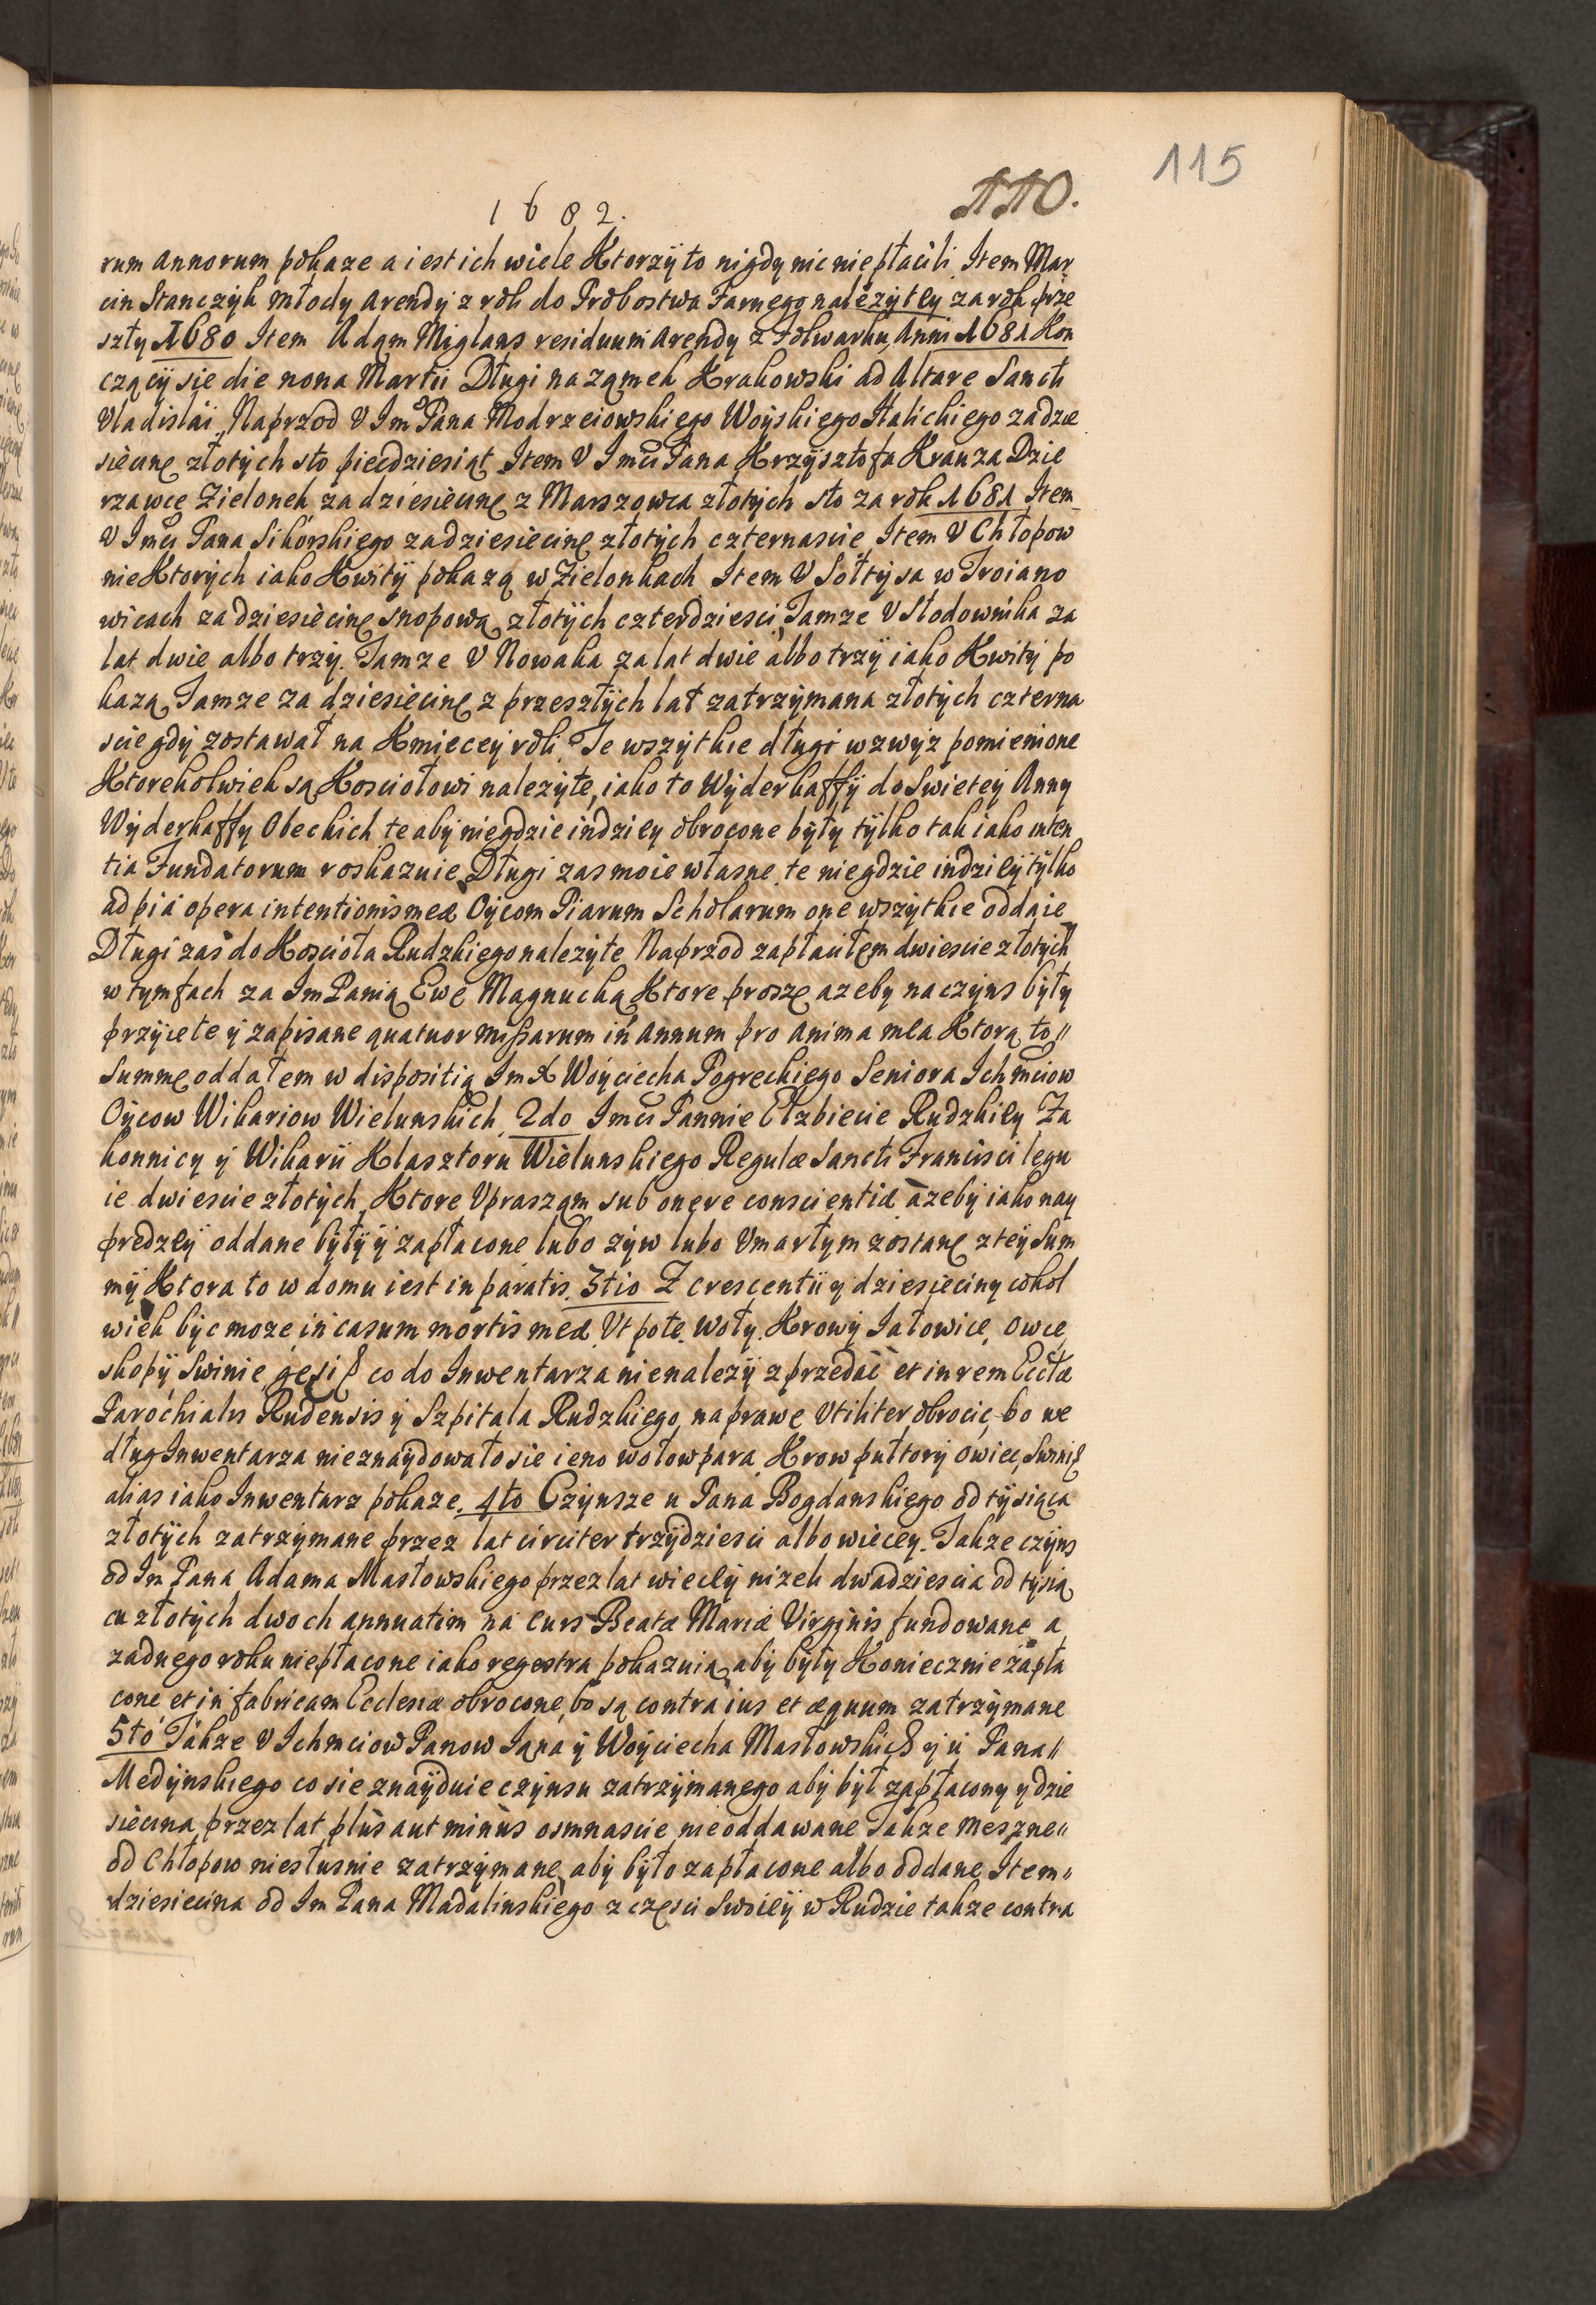 115
110.
1682.
rum Annorum pokaze a iest ich wiele Ktorzÿ to nigdy nic nie płacili Item Mar
cin Stanczÿk młody Arendÿ z roli do Probostwa Farnego nalezÿtey za rok prze
szły 1680 Item Adam Miglans residuum Arendy z Folwarku Anni 1681 Kon
czącÿ sie die nona Martii Długi na zamek Krakowski ad Altare Sancti
Vladislai, Naprzod V Imo Pana Modrzeiowskiego Woÿskiego Halickiego za dzie
siecinę złotÿch sto piecdziesiąt Item V Imci Pana Krzÿsztofa Krauza Dzie
rzawce Zielonek za dziesiecinę z Marszowca złotÿch sto za rok 1681 Item
V Imci Pana Sikorskiego za dziesiecinę złotÿch czternascie Item V Chłopow
nieKtorÿch iako Kwitÿ pokazą w Zielonkach Item V Sołtÿsa w Troiano
wicach za dziesiecinę snopową złotÿch czterdziesci, Tamze V Słodownika za
lat dwie albo trzÿ. Tamze V Nowaka za lat dwie albo trzÿ iako Kwitÿ po
kazą, Tamze za dziesiecinę z przeszłÿch lat zatrzÿmana złotÿch czterna
scie gdÿ zostawał na Kmieceÿ roli. Te wszÿtkie długi wzwÿz pomienione
Ktorekolwiek są Kosciołowi nalezÿte, iako to Wÿderkaffÿ do Swieteÿ Anny
Wÿderkaffy Obeckich te abÿ niegdzie indziey obrocone bÿłÿ tÿlko tak iako inten
tia Fundatorum roskazuie, Długi zas moie własne te niegdzie indzieÿ tÿlko
ad pia opera intentionis meæ Oÿcom Piarum Scholarum one wszÿtkie oddaie
Długi zas do Kosciola Rudzkiego nalezÿte Naprzod zapłaciłem dwiescie złotÿch
w tymfach za Im Panią Ewę Magnucką Ktore proszę azeby na czÿns bÿłÿ
przÿiete ÿ zapisane quatuor missarum in Annum pro Anima mea Ktorą to //
Summę oddałem w dispositią Im X Woÿciecha Pogreckiego Seniora Ichmciow
Oÿcow Wikariow Wielunskich. 2do Imci Pannie Elzbiecie Rudzkiey Za
konnicy ÿ Wikarÿ Klasztoru Wielunskiego Regulæ Sancti Francisci legu
ie dwiescie złotÿch, Ktore Vpraszam sub onere conscientiæ azebÿ iako nay
predzeÿ oddane bÿłÿ ÿ zapłacone lubo zÿw lubo Vmarłym zostanę z teÿ Sum
mÿ Ktora to w domu iest in paratis. 3tio Z crescentii y dziesiecinÿ cokol
wiek bÿc moze in casum mortis meæ Vt pote Woły. Krowÿ Jałowice, owce,
skopÿ Swinie gęsi & co do Inwentarza nienalezÿ zprzedac et in rem Eccłæ
Parochialis Rudensis ÿ Szpitala Rudzkiego naprawe Vtiliter obrocic, bo we
dług Inwentarza nieznaÿdowało sie ieno wołow para, Krow pułtorÿ owiec, Swini &
alias iako Inwentarz pokaze. 4to Czÿnsze u Pana Bogdanskiego od tÿsiąca
złotÿch zatrzÿmane przez lat circiter trzÿdziesci albo wiecey. Takze czÿns
od Im Pana Adama Masłowskiego przez lat wieceÿ nizeli dwadziescia od tÿsią
ca złotÿch dwoch annuatim na curs Beatæ Mariæ Virginis fundowane a
zadnego roku niepłacone iako regestra pokazuią, abÿ bÿłÿ Koniecznie zapła
cone et in fabricam Ecclesiæ obrocone, bo są contra ius et æquum zatrzÿmane
5to Takze V Ichmciow Panow Jana ÿ Woÿciecha Masłowskich y u Pana //
Medÿnskiego co sie znaÿduie czÿnsu zatrzÿmanego abÿ bÿł zapłacony y dzie
siecina przez lat plus aut minus osmnascie nieoddawane Takze meszne //
od Chłopow niesłusnie zatrzÿmane, abÿ bÿło zapłacone albo oddane, Item //
dziesiecina od Im Pana Madalinskiego z częsci Swoieÿ w Rudzie takze contra